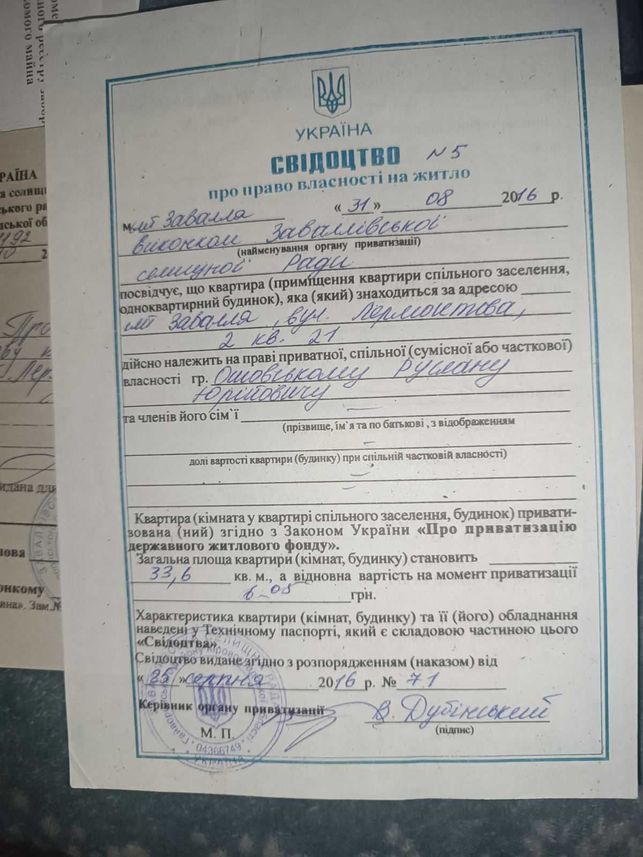 УКРАЇНА
СВІДОЦТВО N 5
про право власності на житло
м. смт Завалля « 31 » 08 2016 р.
виконком Заваллівської
(найменування органу приватизації)
селищної Ради
посвідчує, що квартира (приміщення квартири спільного заселення,
одноквартирний будинок), яка (який) знаходиться за адресою
смт Завалля, вул. Лермонтова,
2 кв. 21
дійсно належить на праві приватної, спільної (сумісної або часткової)
власності гр. Ошовському Руслану
Юрійовичу
та членів його сім`ї
(прізвище, ім`я та по батькові , з відображенням
долі вартості квартири (будинку) при спільній частковій власності)
Квартира (кімната у квартирі спільного заселення, будинок) привати-
зована (ний) згідно з Законом України «Про приватизацію
державного житлового фонду».
Загальна площа квартири (кімнат, будинку) становить
33,6 кв. м., а відновна вартість на момент приватизації
6-05 грн.
Характеристика квартири (кімнат, будинку) та її (його) обладнання
наведені у Технічному паспорті, який є складовою частиною цього
«Свідоцтва».
Свідоцтво видане згідно з розпорядженням (наказом) від
« 25 » серпня 2016 р. № 71
Керівник органу приватизації В. Дубінський
(підпис)
М. П.
04366749
УКРАЇНА